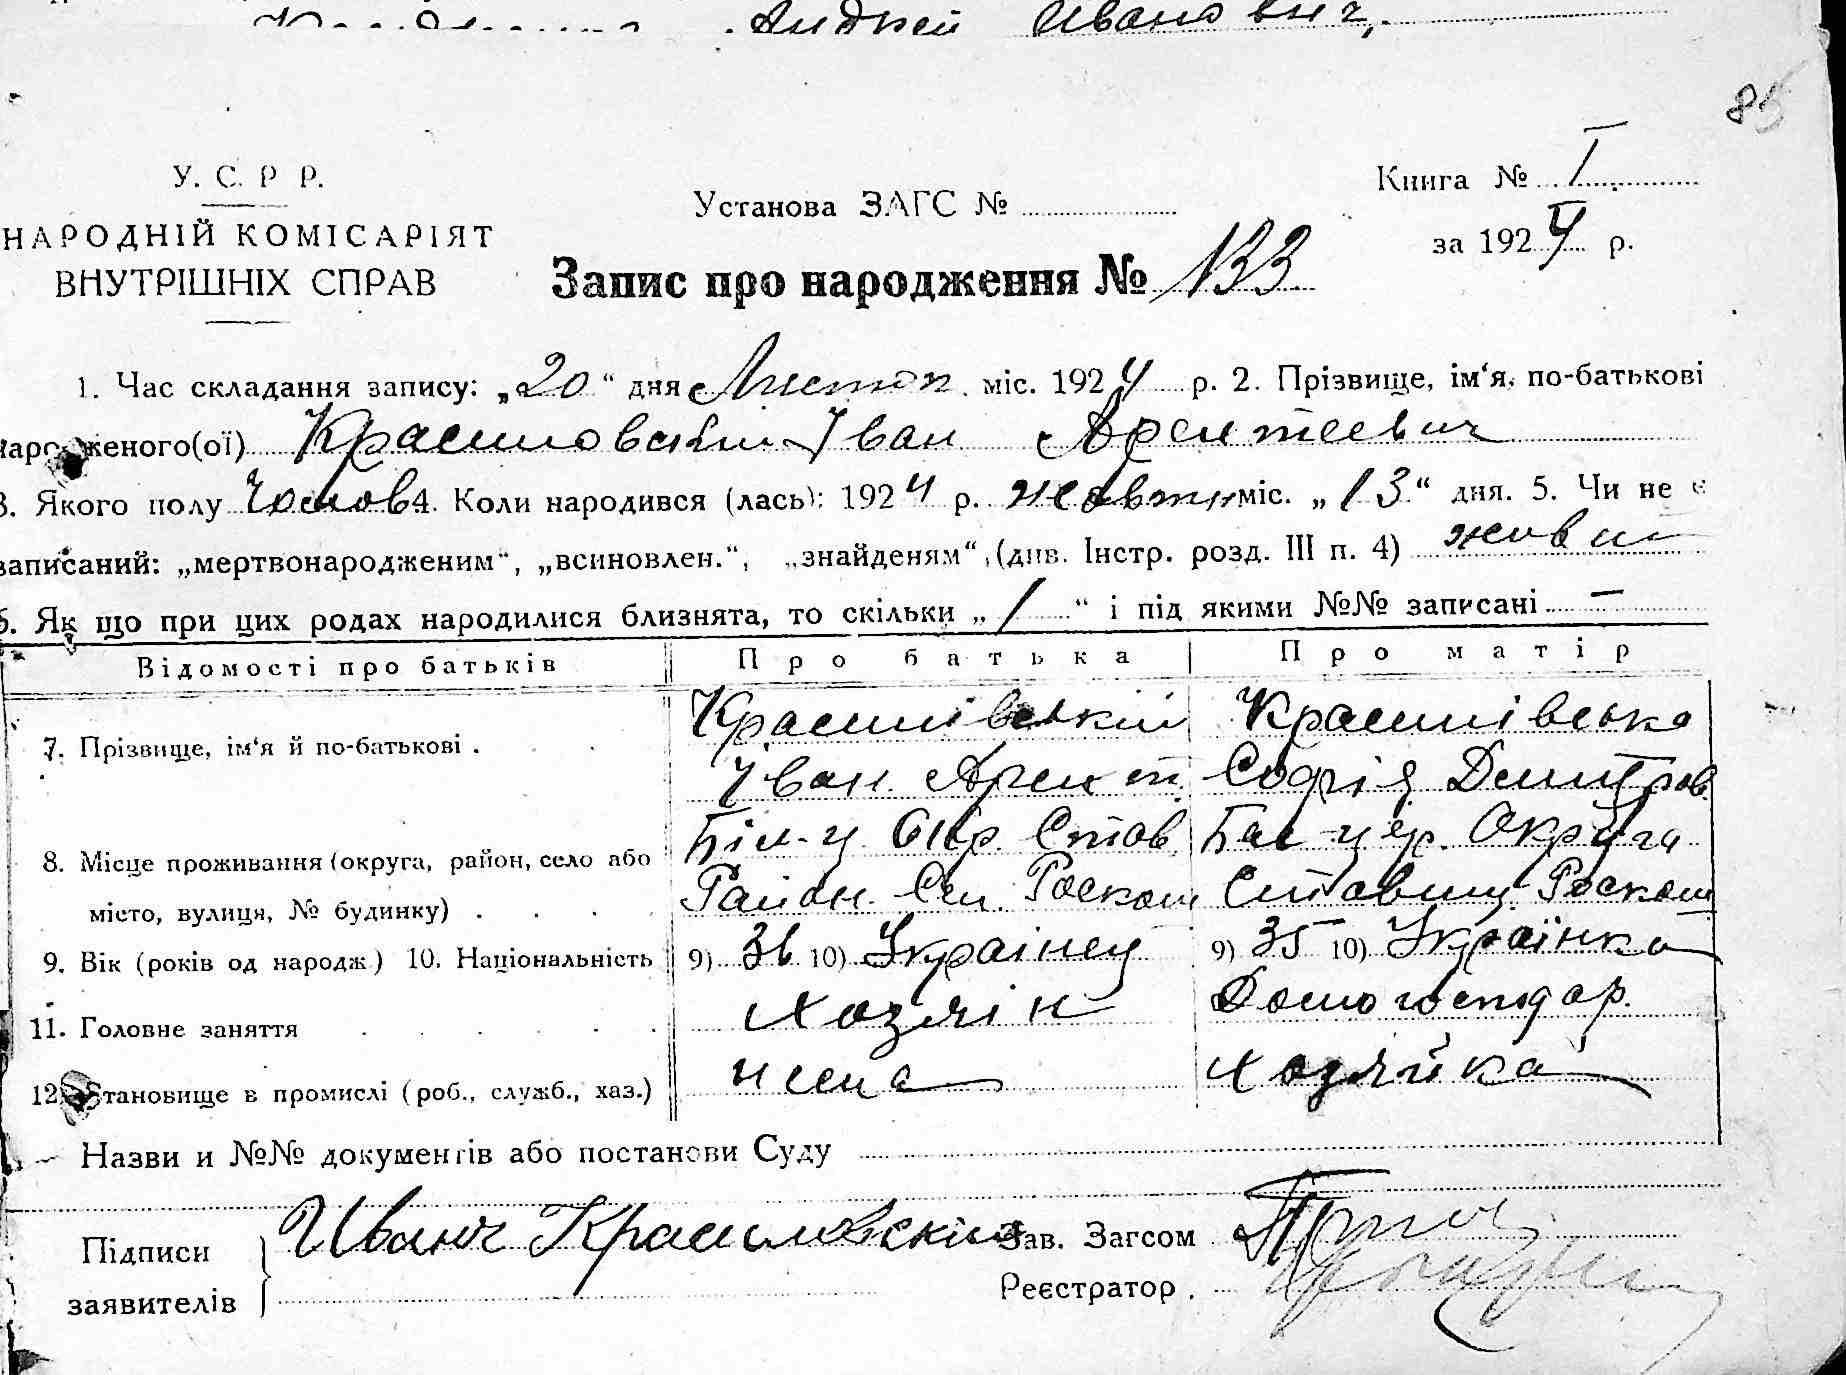 Андрей Иванович,
85
У. С. Р Р.
НАРОДНІЙ КОМІСАРІЯТ
ВНУТРІШНІХ СПРАВ
Установа ЗАГС №
Книга № I
за 1924 р.
Запис про народження № 133
1. Час складання запису: „20“ дня Листоп. міс. 1924 р. 2. Прізвище, ім‘я, по-батькові
народженого(ої) Красиловский Іван Арентеевич
3. Якого полу Чолов 4. Коли народився (лась): 1924 р. жовтн міс. „13“ дня. 5. Чи не є
записаний: „мертвонародженим“, „всиновлен.“, „знайденям“, (див. Інстр. розд. III п. 4) живий
6. Як що при цих родах народилися близнята, то скільки „1“ і під якими №№ записані —
Відомості про батьків Про батька Про матір
7. Прізвище, ім‘я й по-батькові . Красилівський Красилівська
Іван Арент. Софія Дмитров.
8. Місце проживання (округа, район, село або Біл-ц Окр. Став. Біл-цер. Округа
місто, вулиця, № будинку) . Район. Сел. Роскош Ставищ. Роскош
9. Вік (років од народж.) 10. Національність 9) 36 10) Українец 9) 35 10) Українка
11. Головне заняття Хозяін Домогосподар.
12. Становище в промислі (роб., служб., хаз.) нема хозяйка
Назви и №№ документів або постанови Суду
Підписи Иванъ Красиловскій Зав. Загсом
заявителів Реєстратор .